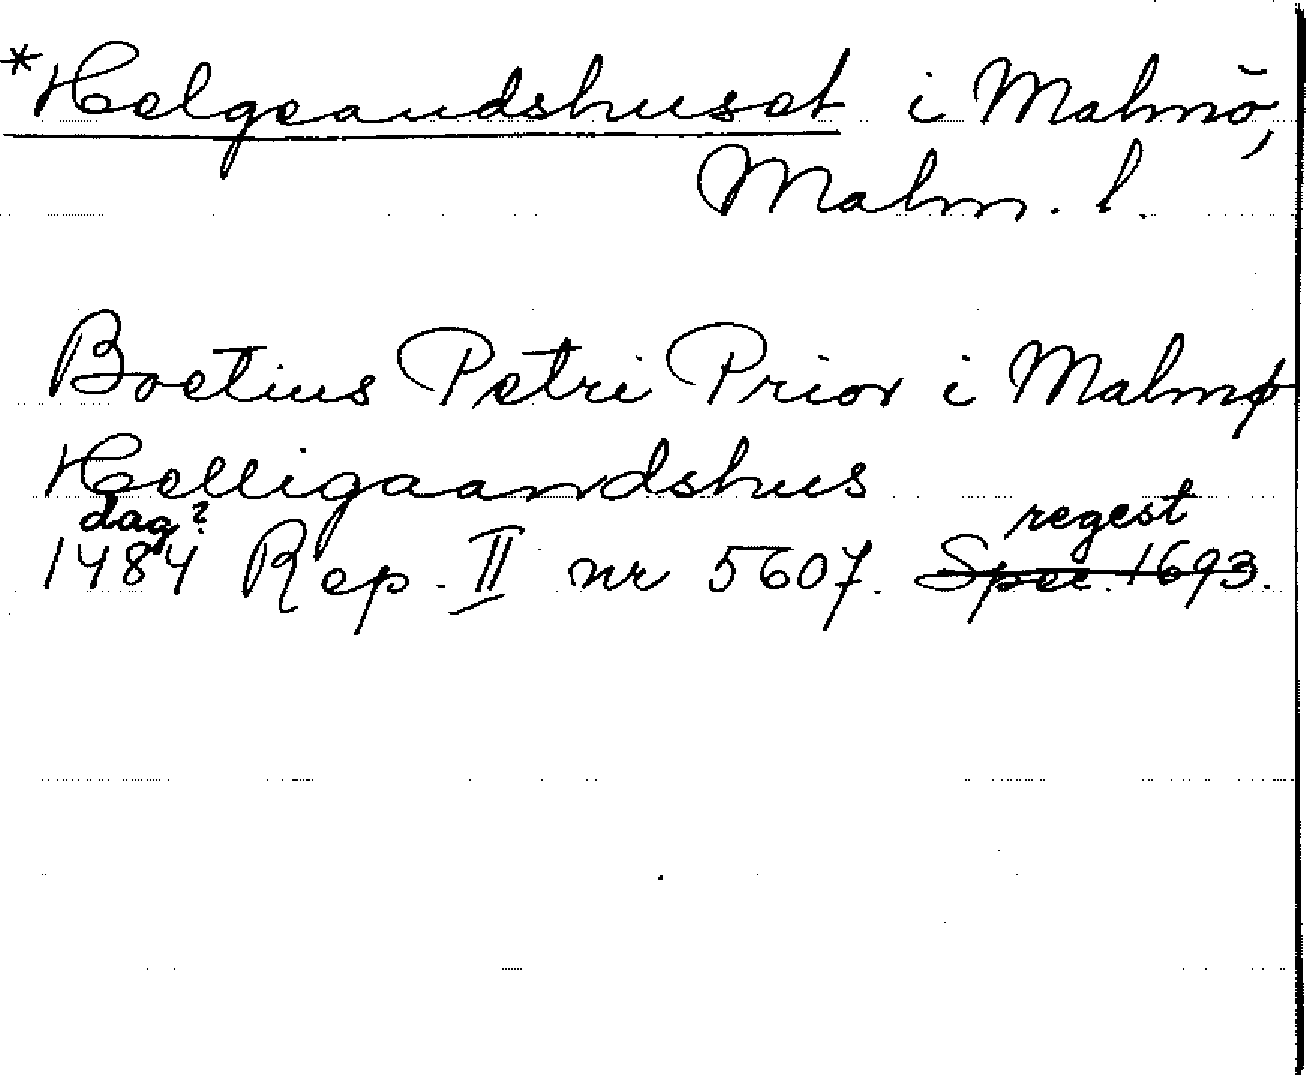 *Helgeandshuset i Malmö,
Malm. l.
Boetius Petri Prior i Malmø
Helligaandshus
dag? regest
1484 Rep. II nr 5607. Spec. 1693.